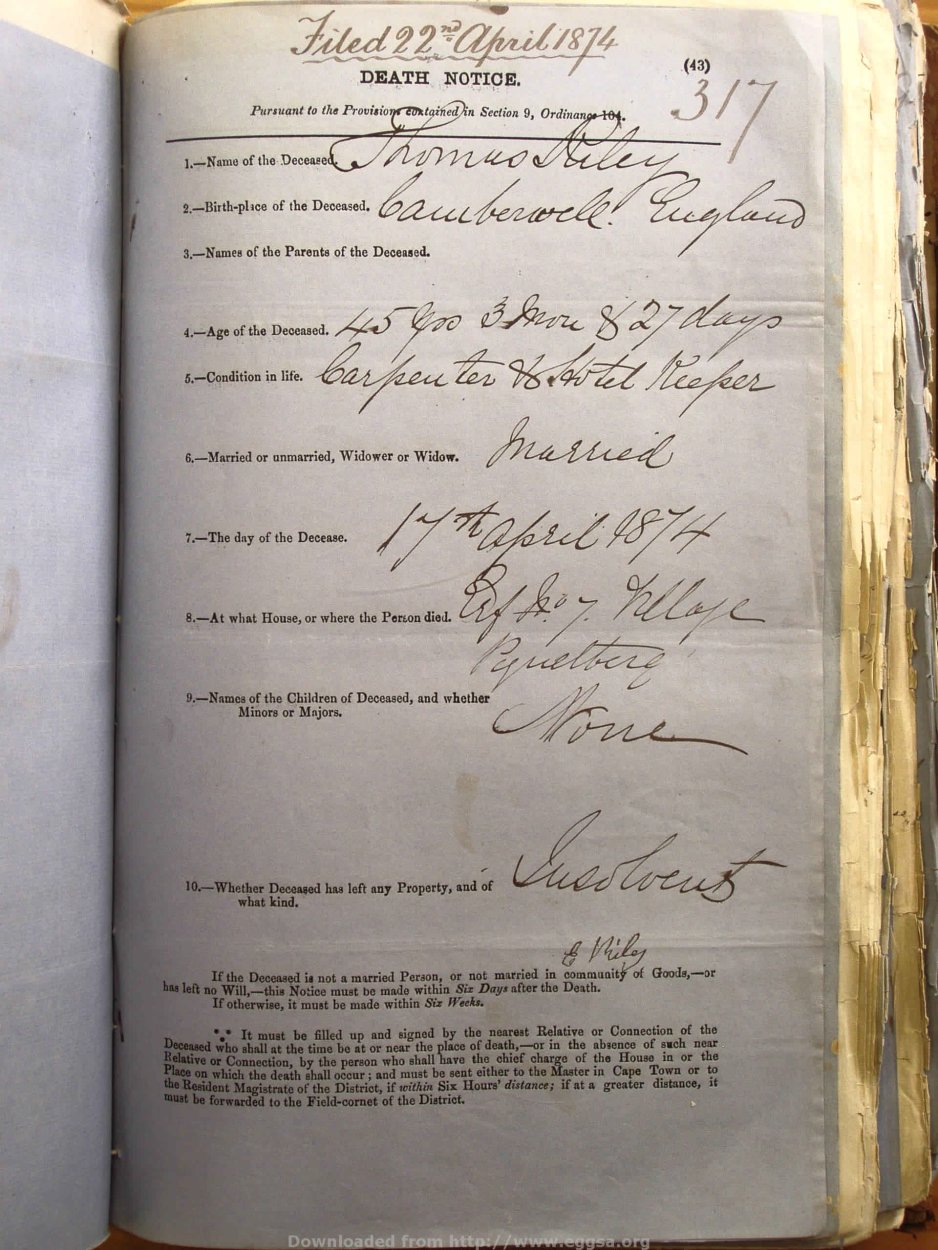 Filed 22nd April 1874
DEATH NOTICE.
(43)
317
Pursuant to the Provisions contained in Section 9, Ordinance 104.
1.—Name of the Deceased. Thomas Riley
2.—Birth-place of the Deceased. Camberwell. England
3.—Names of the Parents of the Deceased.
4.—Age of the Deceased. 45 Yrs 3 Mon & 27 days
5.—Condition in life. Carpenter & Hotel Keeper
6.—Married or unmarried, Widower or Widow. Married
7.—The day of the Decease. 17th April 1874
8.—At what House, or where the Person died. Erf No 7. Village
Piquetberg
9.—Names of the Children of Deceased, and whether
Minors or Majors. None
10.—Whether Deceased has left any Property, and of
what kind. Insolvent
E Riley
If the Deceased is not a married Person, or not married in community of Goods,—or
has left no Will,—this Notice must be made within Six Days after the Death.
If otherwise, it must be made within Six Weeks.
*** It must be filled up and signed by the nearest Relative or Connection of the
Deceased who shall at the time be at or near the place of death,—or in the absence of such near
Relative or Connection, by the person who shall have the chief charge of the House in or the
Place on which the death shall occur; and must be sent either to the Master in Cape Town or to
the Resident Magistrate of the District, if within Six Hours' distance; if at a greater distance, it
must be forwarded to the Field-cornet of the District.
Downloaded from http://www.eggsa.org